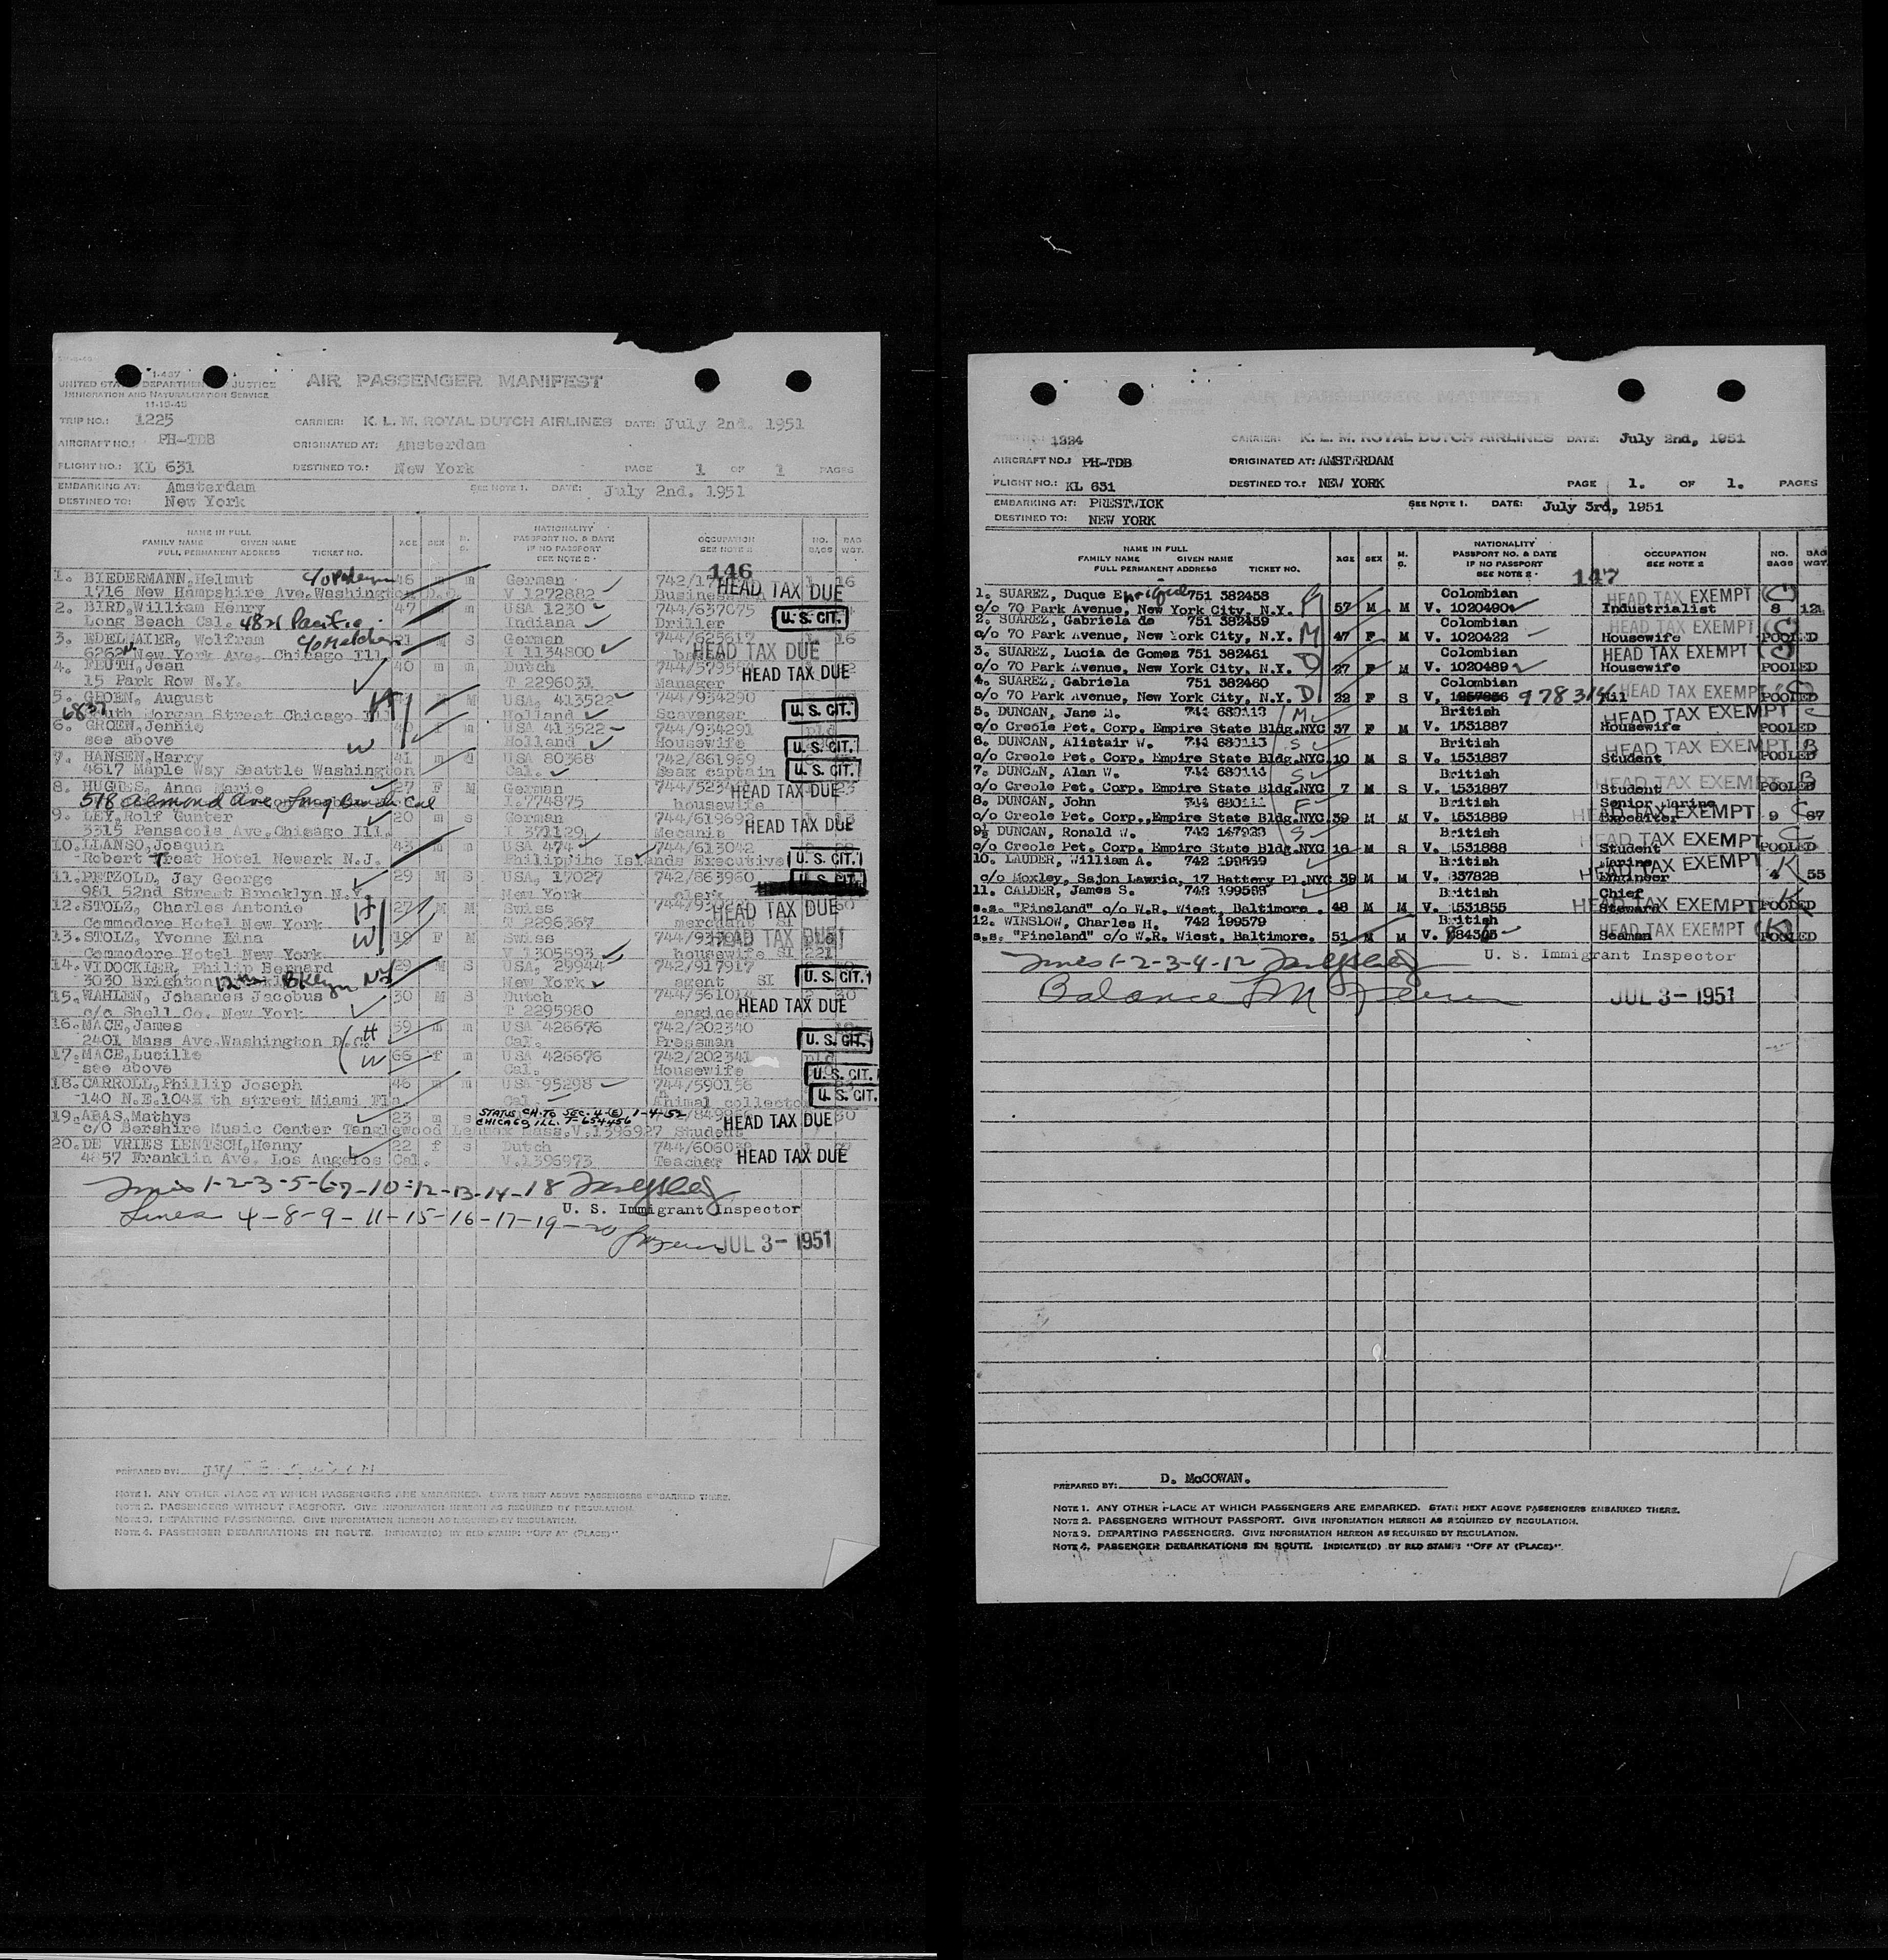 I-467
UNITED STATES DEPARTMENT JUSTICE
IMMIGRATION AND NATURALIZATION SERVICE
11-19-45
AIR PASSENGER MANIFEST
TRIP NO.: 1225
CARRIER: K. L. M. ROYAL DUTCH AIRLINES DATE: July 2nd. 1951
AIRCRAFT NO.: PH-TDB
ORIGINATED AT: Amsterdam
FLIGHT NO.: KL 631
DESTINED TO.: New York PAGE 1 OF 1 PAGES
EMBARKING AT: Amsterdam SEE NOTE 1. DATE: July 2nd. 1951
DESTINED TO: New York
NAME IN FULL
FAMILY NAME GIVEN NAME
FULL PERMANENT ADDRESS TICKET NO.
AGE SEX M. S.
NATIONALITY
PASSPORT NO. & DATE
IF NO PASSPORT
SEE NOTE 2
OCCUPATION
SEE NOTE 2
NO. BAGS
BAG WGT.
146
1. BIEDERMANN, Helmut 46 m m German HEAD TAX DUE 16
1716 New Hampshire Ave. Washington D.C. V 1272882
2. BIRD, William Henry 47 m USA 1230 744/637075
Long Beach Cal. 4821 Pacific Indiana Driller U.S. CIT.
3. EDELMAIER, Wolfram 21 M S German 744/625617 16
6262 New York Ave. Chicago Ill I 1134800 HEAD TAX DUE
4. FEUTH, Jean 40 m m Dutch
15 Park Row N.Y. T 2296031 Manager HEAD TAX DUE
5. GROEN, August M M USA, 413522 744/934290
6837 South Morgan Street Chicago Ill H Holland Scavenger U.S. CIT.
6. GROEN, Jennie 40 f m USA 413522 744/934291 pld
see above W Holland Housewife U.S. CIT.
7. HANSEN, Harry 41 m d USA 80368 742/861969
4617 Maple Way Seattle Washington Cal. Seax captain U.S. CIT.
8. HUGUES, Anna Marie 27 F M German HEAD TAX DUE 23
518 Almond Ave Long Beach Cal I.774875 housewife
9. LEY, Rolf Gunter 20 m s German 744/619692
3315 Pensacola Ave. Chicago Ill. I 371129 Mecanic HEAD TAX DUE
10. LLANSO, Joaquin 43 m m USA 474 744/613042
Robert Treat Hotel Newark N.J. Philippine Islands Executive U.S. CIT.
11. PETZOLD, Jay George 29 M S USA, 17027 742/863960
981 52nd Street Brooklyn N.Y. New York clerk U.S. CIT.
12. STOLZ, Charles Antonie H 27 M M Swiss HEAD TAX DUE
Commodore Hotel New York T 2296367 merchant SI
13. STOLZ, Yvonne Edna W 19 F M Swiss HEAD TAX DUE
Commodore Hotel New York V 1305593 housewife SI 221
14. VIDOCKLER, Philip Bernard 29 M S USA, 29944 742/917917
3030 Brighton 12th Bklyn NY New York agent SI U.S. CIT.
15. WAHLEN, Johannes Jacobus 30 M S Dutch 2 30
c/o Shell Co. New York T 2295980 engineer HEAD TAX DUE
16. MACE, James H 59 m m USA 426676 742/202340
2401 Mass Ave. Washington D.C. Cal. Pressman U.S. CIT.
17. MACE, Lucille W 66 f m USA 426676 742/202341 pld
see above Cal. Housewife U.S. CIT.
18. CARROLL, Phillip Joseph 46 m m USA 95298 744/590156
140 N.E. 104 th street Miami Fla. Cal. Animal collector U.S. CIT.
19. ABAS, Mathys 23 m s STATUS CH. TO SEC. 4 (E) 1-4-52 30
CHICAGO, ILL. T-654456
c/o Bershire Music Center Tanglewood Lennox Mass. V.1396927 Student HEAD TAX DUE
20. DE VRIES LENTSCH, Henny 22 f s Dutch 1 27
4857 Franklin Ave. Los Angelos Cal. V.1396973 Teacher HEAD TAX DUE
Lines 1-2-3-5-6-7-10-12-13-14-18
U. S. Immigrant Inspector
Lines 4-8-9-11-15-16-17-19-20
JUL 3-1951
PREPARED BY:
NOTE 1. ANY OTHER PLACE AT WHICH PASSENGERS ARE EMBARKED. STATE NEXT ABOVE PASSENGERS EMBARKED THERE.
NOTE 2. PASSENGERS WITHOUT PASSPORT. GIVE INFORMATION HEREON AS REQUIRED BY REGULATION.
NOTE 3. DEPARTING PASSENGERS. GIVE INFORMATION HEREON AS REQUIRED BY REGULATION.
NOTE 4. PASSENGER DEBARKATIONS EN ROUTE. INDICATE(D) BY RED STAMP: "OFF AT (PLACE)"
AIR PASSENGER MANIFEST
1224
CARRIER: K. L. M. ROYAL DUTCH AIRLINES DATE: July 2nd, 1951
AIRCRAFT NO.: PH-TDB ORIGINATED AT: AMSTERDAM
FLIGHT NO.: KL 631 DESTINED TO.: NEW YORK PAGE 1. OF 1. PAGES
EMBARKING AT: PRESTWICK SEE NOTE 1. DATE: July 3rd, 1951
DESTINED TO: NEW YORK
NAME IN FULL
FAMILY NAME GIVEN NAME
FULL PERMANENT ADDRESS TICKET NO.
AGE SEX M. S.
NATIONALITY
PASSPORT NO. & DATE
IF NO PASSPORT
SEE NOTE 2
OCCUPATION
SEE NOTE 2
NO. BAGS
BAG WGT.
147
1. SUAREZ, Duque Enrique 751 382458 Colombian HEAD TAX EXEMPT
c/o 70 Park Avenue, New York City, N.Y. 57 M M V. 1020490 Industrialist 8 121
2. SUAREZ, Gabriela de 751 382459 Colombian HEAD TAX EXEMPT
c/o 70 Park Avenue, New York City, N.Y. M 47 F M V. 1020422 Housewife POOLED
3. SUAREZ, Lucia de Gomes 751 382461 Colombian HEAD TAX EXEMPT
c/o 70 Park Avenue, New York City, N.Y. D 27 F M V. 1020489 Housewife POOLED
4. SUAREZ, Gabriela 751 382460 Colombian
c/o 70 Park Avenue, New York City, N.Y. D 22 F S V. 978314 Nil HEAD TAX EXEMPT POOLED
5. DUNCAN, Jane M. 741 680113 M British HEAD TAX EXEMPT
c/o Creole Pet. Corp. Empire State Bldg. NYC 37 F M V. 1531887 Housewife POOLED
6. DUNCAN, Alistair W. 741 680113 S British HEAD TAX EXEMPT
c/o Creole Pet. Corp. Empire State Bldg. NYC. 10 M S V. 1531887 Student POOLED
7. DUNCAN, Alan W. S British HEAD TAX EXEMPT
c/o Creole Pet. Corp. Empire State Bldg. NYC 7 M S V. 1531887 Student POOLED
8. DUNCAN, John F British Senior Marine
c/o Creole Pet. Corp., Empire State Bldg. NYC. 39 M M V. 1531889 Expediter HEAD TAX EXEMPT 9 87
9. DUNCAN, Ronald W. S British HEAD TAX EXEMPT
c/o Creole Pet. Corp. Empire State Bldg. NYC 16 M S V. 1531888 Student POOLED
10. LAUDER, William A. 742 199569 British Marine HEAD TAX EXEMPT K
c/o Moxley, Sajon Lawria, 17 Battery Pl. NYC 39 M M V. 837828 Engineer 4 55
11. CALDER, James S. British Chief
s.s. "Pineland" c/o W.R. Wiest, Baltimore. 48 M M V. 1531855 Steward HEAD TAX EXEMPT POOLED
12. WINSLOW, Charles H. 742 199579 British HEAD TAX EXEMPT
s.s. "Pineland" c/o W.R. Wiest, Baltimore. 51 M M V. Seaman POOLED
Lines 1-2-3-4-12
U. S. Immigrant Inspector
Balance
JUL 3-1951
PREPARED BY: D. McCOWAN.
NOTE 1. ANY OTHER PLACE AT WHICH PASSENGERS ARE EMBARKED. STATE NEXT ABOVE PASSENGERS EMBARKED THERE.
NOTE 2. PASSENGERS WITHOUT PASSPORT. GIVE INFORMATION HEREON AS REQUIRED BY REGULATION.
NOTE 3. DEPARTING PASSENGERS. GIVE INFORMATION HEREON AS REQUIRED BY REGULATION.
NOTE 4. PASSENGER DEBARKATIONS EN ROUTE. INDICATE(D) BY RED STAMP: "OFF AT (PLACE)".